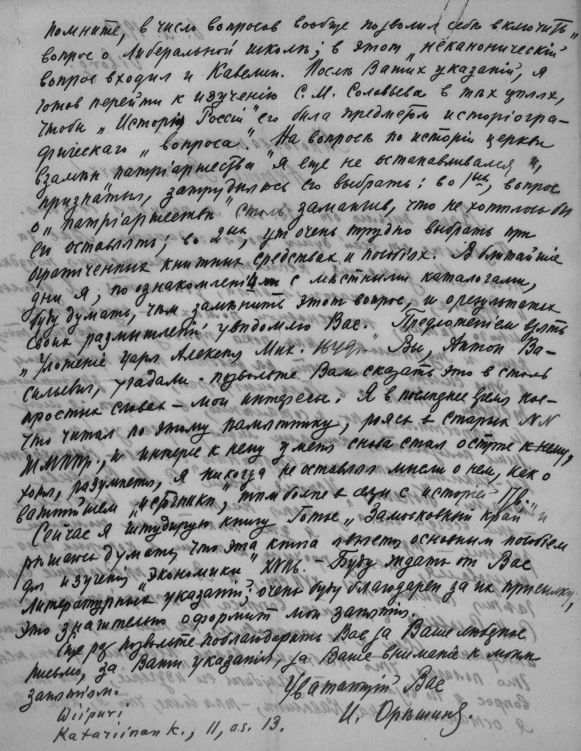 помните, в число вопросов вообще позволил себе включить
вопрос о Либеральной школѣ; в этот „неканоническій"
вопрос входил и Кавелин. После Ваших указаній, я
готов перейти к изученію С. М. Соловьева в тѣх цѣлях,
чтобы „Исторія Россіи" его была предметом исторіогра-
фическаго „вопроса". На вопросѣ по исторіи церкви
взамѣн патріаршества я еще не останавливался и,
признаться, затрудняюсь его выбрать: во 1ых, вопрос
о „патріаршествѣ" столь заманчив, что не хотѣлось бы
его оставлять; во 2ых, уж очень трудно выбрать при
ограниченных книжных средствах и пособіях. В ближайшіе
дни я, по ознакомленіи с мѣстными каталогами,
буду думать, чем замѣнить этот вопрос, и о результатах
своих размышленій увѣдомлю Вас. Предложеніем взять
„Уложеніе царя Алексѣя Мих." Вы, Антон Ва-
сильевич, угадали – позвольте Вам сказать это в столь
простых словах – мои интересы. Я в последнее время кое-
что читал по этому памятнику, роясь в старых NN
Ж.М.Н.Пр., и интерес к нему у меня снова стал остро
хотя, разумѣется, я никогда не оставлял мысли о нем, как о
важнѣйшем „источникѣ", тѣм более в связи с исторіей Пр.
Сейчас я штудирую книгу Готье „Замосковный край" и
рѣшаюсь думать, что эта книга явится основным пособіем
для изученія „Экономики" XVII в. – Буду ждать от Вас
литературных указаній; очень буду благодарен за их присылку,
это значительно оформит мои занятія.
Еще раз позвольте поблагодарить Вас за Ваше любезное
письмо, за Ваши указанія, за Ваше вниманіе к моим
занятіям.
Уважающій Вас
И. Орѣшин.
Wiipuri
Katariinank., 11, as. 13.